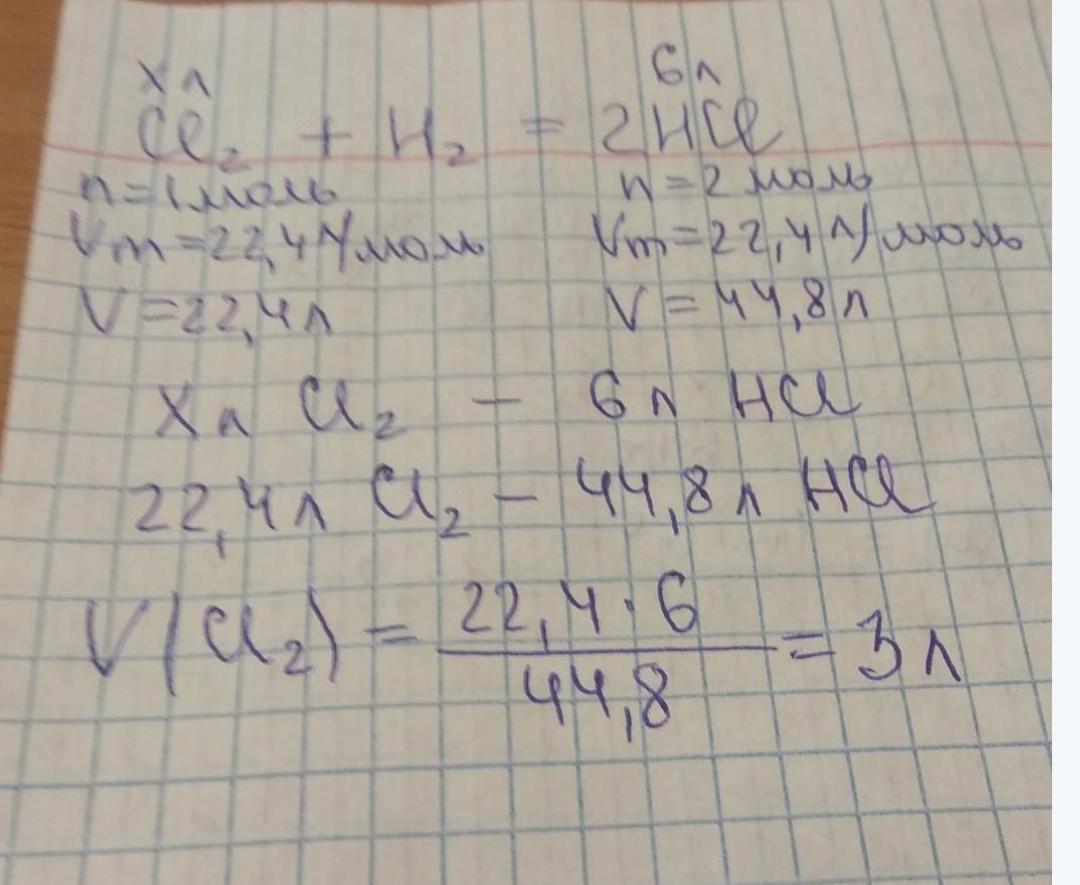 xл 6л
Cl₂ + H₂ = 2HCl
n=1моль n=2моль
Vm=22,4л/моль Vm=22,4л/моль
V=22,4л V=44,8л
Xл Cl₂ – 6л HCl
22,4л Cl₂ – 44,8л HCl
V(Cl₂) = 22,4·6 / 44,8 = 3л